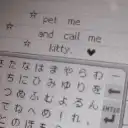 ☆ pet me ☆
☆ and call me
kitty. ♥
さたなはまやらわ
ちにひみゆりを
つぬふむよるん
てねへめ！れ、
とのほも
ENTER